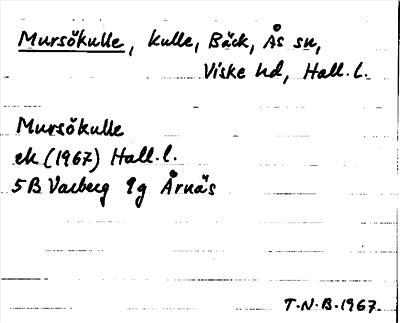 Mursökulle, kulle, Bäck, Ås sn,
Viske hd, Hall. l.
Mursökulle
ek (1967) Hall. l.
5B Varberg 9g Årnäs
T.N.B. 1967.